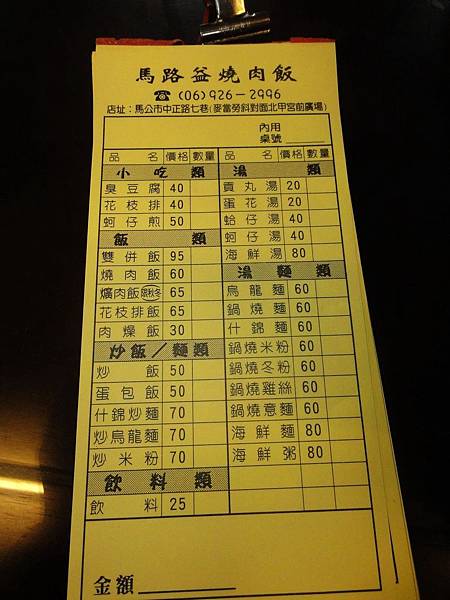 馬路益燒肉飯
☎ (06)926-2996
店址：馬公市中正路七巷(麥當勞斜對面北甲宮前廣場)
內用
桌號
品名 價格 數量
小吃類
臭豆腐 40
花枝排 40
蚵仔煎 50
飯類
雙併飯 95
燒肉飯 60
爌肉飯 65
花枝排飯 65
肉燥飯 30
炒飯／麵類
炒飯 50
蛋包飯 50
什錦炒麵 70
炒烏龍麵 70
炒米粉 70
飲料類
飲料 25
品名 價格 數量
湯類
貢丸湯 20
蛋花湯 20
蛤仔湯 40
蚵仔湯 40
海鮮湯 80
湯麵類
烏龍麵 60
鍋燒麵 60
什錦麵 60
鍋燒米粉 60
鍋燒冬粉 60
鍋燒雞絲 60
鍋燒意麵 60
海鮮麵 80
海鮮粥 80
金額